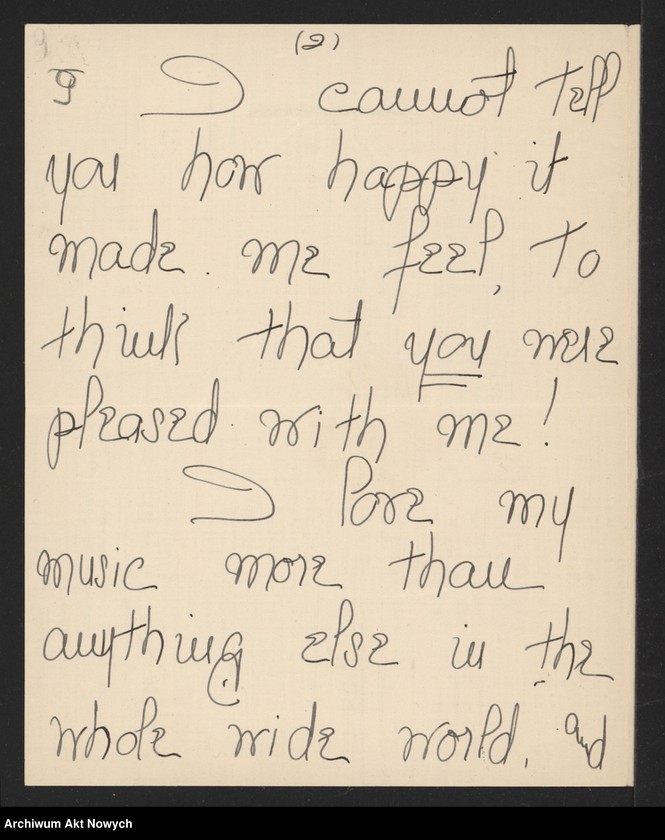 (2)
9 I cannot tell
you how happy it
made me feel, to
think that you were
pleased with me!
I love my
music more than
anything else in the
whole wide world, and
Archiwum Akt Nowych